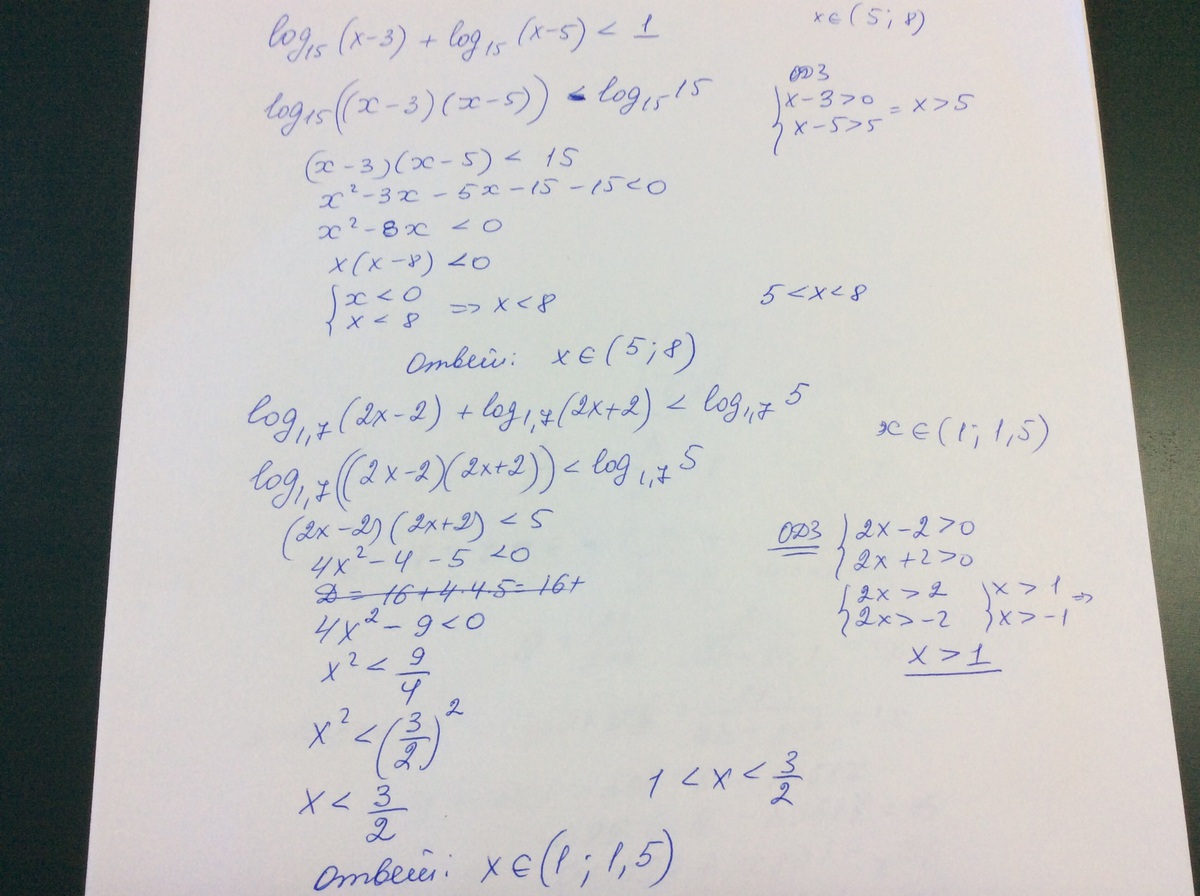 log₁₅(x-3) + log₁₅(x-5) < 1
x ∈ (5; 8)
log₁₅((x-3)(x-5)) < log₁₅15
ОДЗ
{x-3>0
x-5>5 = x>5
(x-3)(x-5) < 15
x²-3x-5x-15-15<0
x²-8x <0
x(x-8) <0
{x<0
x<8 => x<8
5<x<8
Ответ: x ∈ (5; 8)
log₁,₇(2x-2) + log₁,₇(2x+2) < log₁,₇5
x ∈ (1; 1,5)
log₁,₇((2x-2)(2x+2)) < log₁,₇5
(2x-2)(2x+2) <5
4x²-4-5 <0
D = 16+4·4·5=16+
4x²-9<0
x² < 9/4
x² < (3/2)²
x < 3/2
ОДЗ {2x-2>0
2x+2>0
{2x>2 {x>1 =>
2x>-2 x>-1
x>1
1 < x < 3/2
Ответ: x ∈ (1; 1,5)